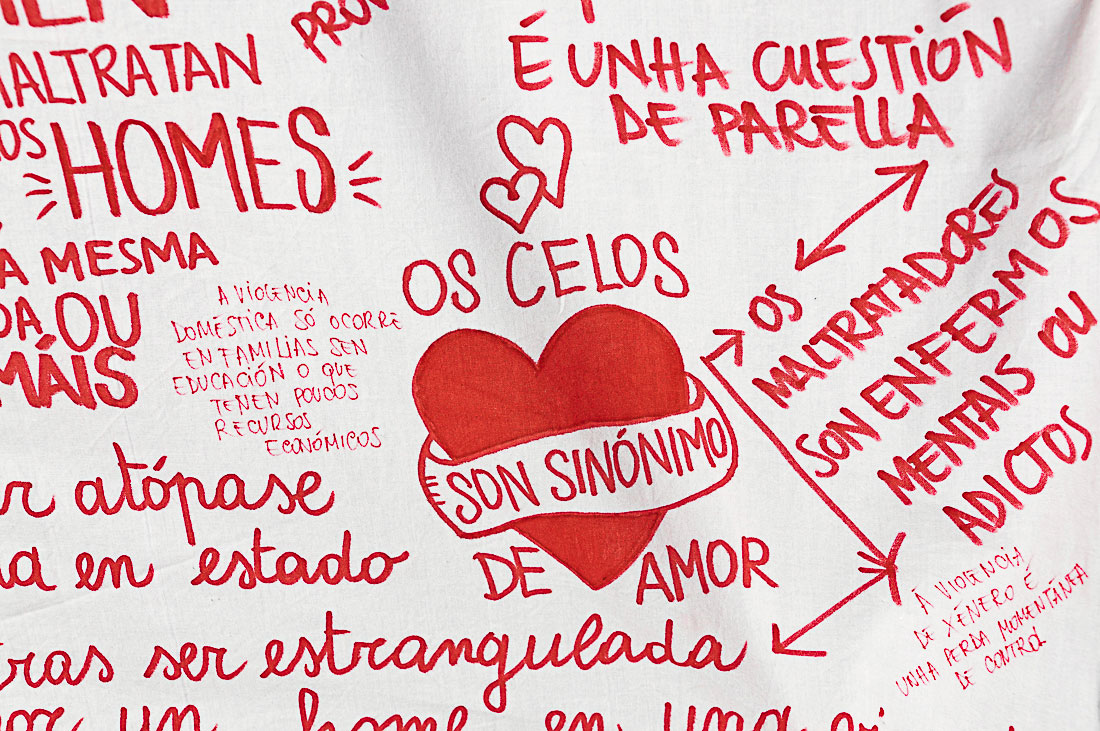 MALTRATAN
HOMES
MESMA
OU
MÁIS
A VIOLENCIA
DOMÉSTICA SÓ OCORRE
EN FAMILIAS SEN
EDUCACIÓN O QUE
TENEN POUCOS
RECURSOS
ECONÓMICOS
atópase
en estado
ser estrangulada
un home en unha
É UNHA CUESTIÓN
DE PARELLA
OS CELOS
SON SINÓNIMO
DE AMOR
OS
MALTRATADORES
SON ENFERMOS
MENTAIS OU
ADICTOS
A VIOLENCIA
DE XÉNERO É
UNHA PERDA MOMENTÁNEA
DE CONTROL